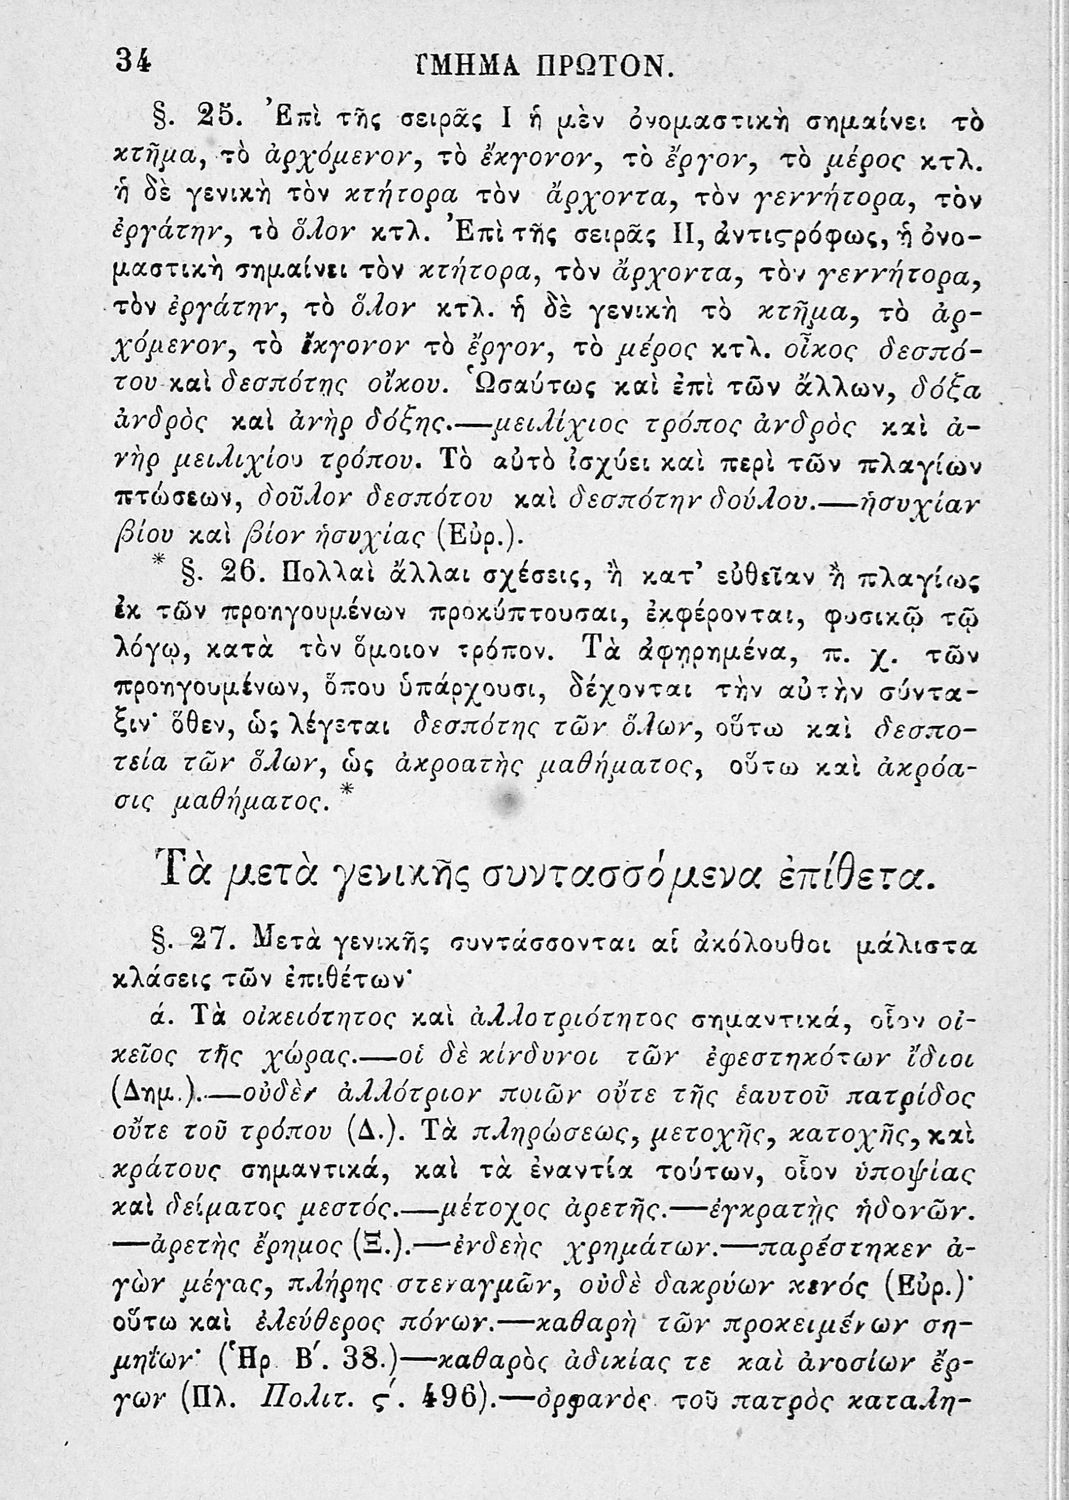 34 ΤΜΗΜΑ ΠΡΩΤΟΝ.
§. 25. Ἐπὶ τῆς σειρᾶς Ι ἡ μὲν ὀνομαστικὴ σημαίνει τὸ
κτῆμα, τὸ ἀρχόμενον, τὸ ἔκγονον, τὸ ἔργον, τὸ μέρος κτλ.
ἡ δὲ γενικὴ τὸν κτήτορα τὸν ἄρχοντα, τὸν γεννήτορα, τὸν
ἐργάτην, τὸ ὅλον κτλ. Ἐπὶ τῆς σειρᾶς ΙΙ, ἀντιςρόφως, ἡ ὀνο-
μαστικὴ σημαίνει τὸν κτήτορα, τὸν ἄρχοντα, τὸν γεννήτορα,
τὸν ἐργάτην, τὸ ὅλον κτλ. ἡ δὲ γενικὴ τὸ κτῆμα, τὸ ἀρ-
χόμενον, τὸ ἔκγονον τὸ ἔργον, τὸ μέρος κτλ. οἶκος δεσπό-
του καὶ δεσπότης οἴκου. Ὡσαύτως καὶ ἐπὶ τῶν ἄλλων, δόξα
ἀνδρὸς καὶ ἀνὴρ δόξης.—μειλίχιος τρόπος ἀνδρὸς καὶ ἀ-
νὴρ μειλιχίου τρόπου. Τὸ αὐτὸ ἰσχύει καὶ περὶ τῶν πλαγίων
πτώσεων, δοῦλον δεσπότου καὶ δεσπότην δούλου.—ἡσυχίαν
βίου καὶ βίον ἡσυχίας (Εὐρ.).
* §. 26. Πολλαὶ ἄλλαι σχέσεις, ἢ κατ’ εὐθεῖαν ἢ πλαγίως
ἐκ τῶν προηγουμένων προκύπτουσαι, ἐκφέρονται, φυσικῷ τῷ
λόγῳ, κατὰ τὸν ὅμοιον τρόπον. Τὰ ἀφῃρημένα, π. χ. τῶν
προηγουμένων, ὅπου ὑπάρχουσι, δέχονται τὴν αὐτὴν σύντα-
ξιν· ὅθεν, ὡς λέγεται δεσπότης τῶν ὅλων, οὕτω καὶ δεσπο-
τεία τῶν ὅλων, ὡς ἀκροατὴς μαθήματος, οὕτω καὶ ἀκρόα-
σις μαθήματος. *
Τὰ μετὰ γενικῆς συντασσόμενα ἐπίθετα.
§. 27. Μετὰ γενικῆς συντάσσονται αἱ ἀκόλουθοι μάλιστα
κλάσεις τῶν ἐπιθέτων·
ά. Τὰ οἰκειότητος καὶ ἀλλοτριότητος σημαντικά, οἷον οἰ-
κεῖος τῆς χώρας.—οἱ δὲ κίνδυνοι τῶν ἐφεστηκότων ἴδιοι
(Δημ.).—οὐδὲν ἀλλότριον ποιῶν οὔτε τῆς ἑαυτοῦ πατρίδος
οὔτε τοῦ τρόπου (Δ.). Τὰ πληρώσεως, μετοχῆς, κατοχῆς, καὶ
κράτους σημαντικά, καὶ τὰ ἐναντία τούτων, οἷον ὑποψίας
καὶ δείματος μεστός.—μέτοχος ἀρετῆς.—ἐγκρατὴς ἡδονῶν.
—ἀρετὴς ἔρημος (Ξ.).—ἐνδεὴς χρημάτων.—παρέστηκεν ἀ-
γὼν μέγας, πλήρης στεναγμῶν, οὐδὲ δακρύων κενός (Εὐρ.)·
οὕτω καὶ ἐλεύθερος πόνων.—καθαρὴ τῶν προκειμένων ση-
μηΐων· (Ἡρ Β΄. 38.)—καθαρὸς ἀδικίας τε καὶ ἀνοσίων ἔρ-
γων (Πλ. Πολιτ. ς΄. 496).—ὀρφανὸς τοῦ πατρὸς καταλη-